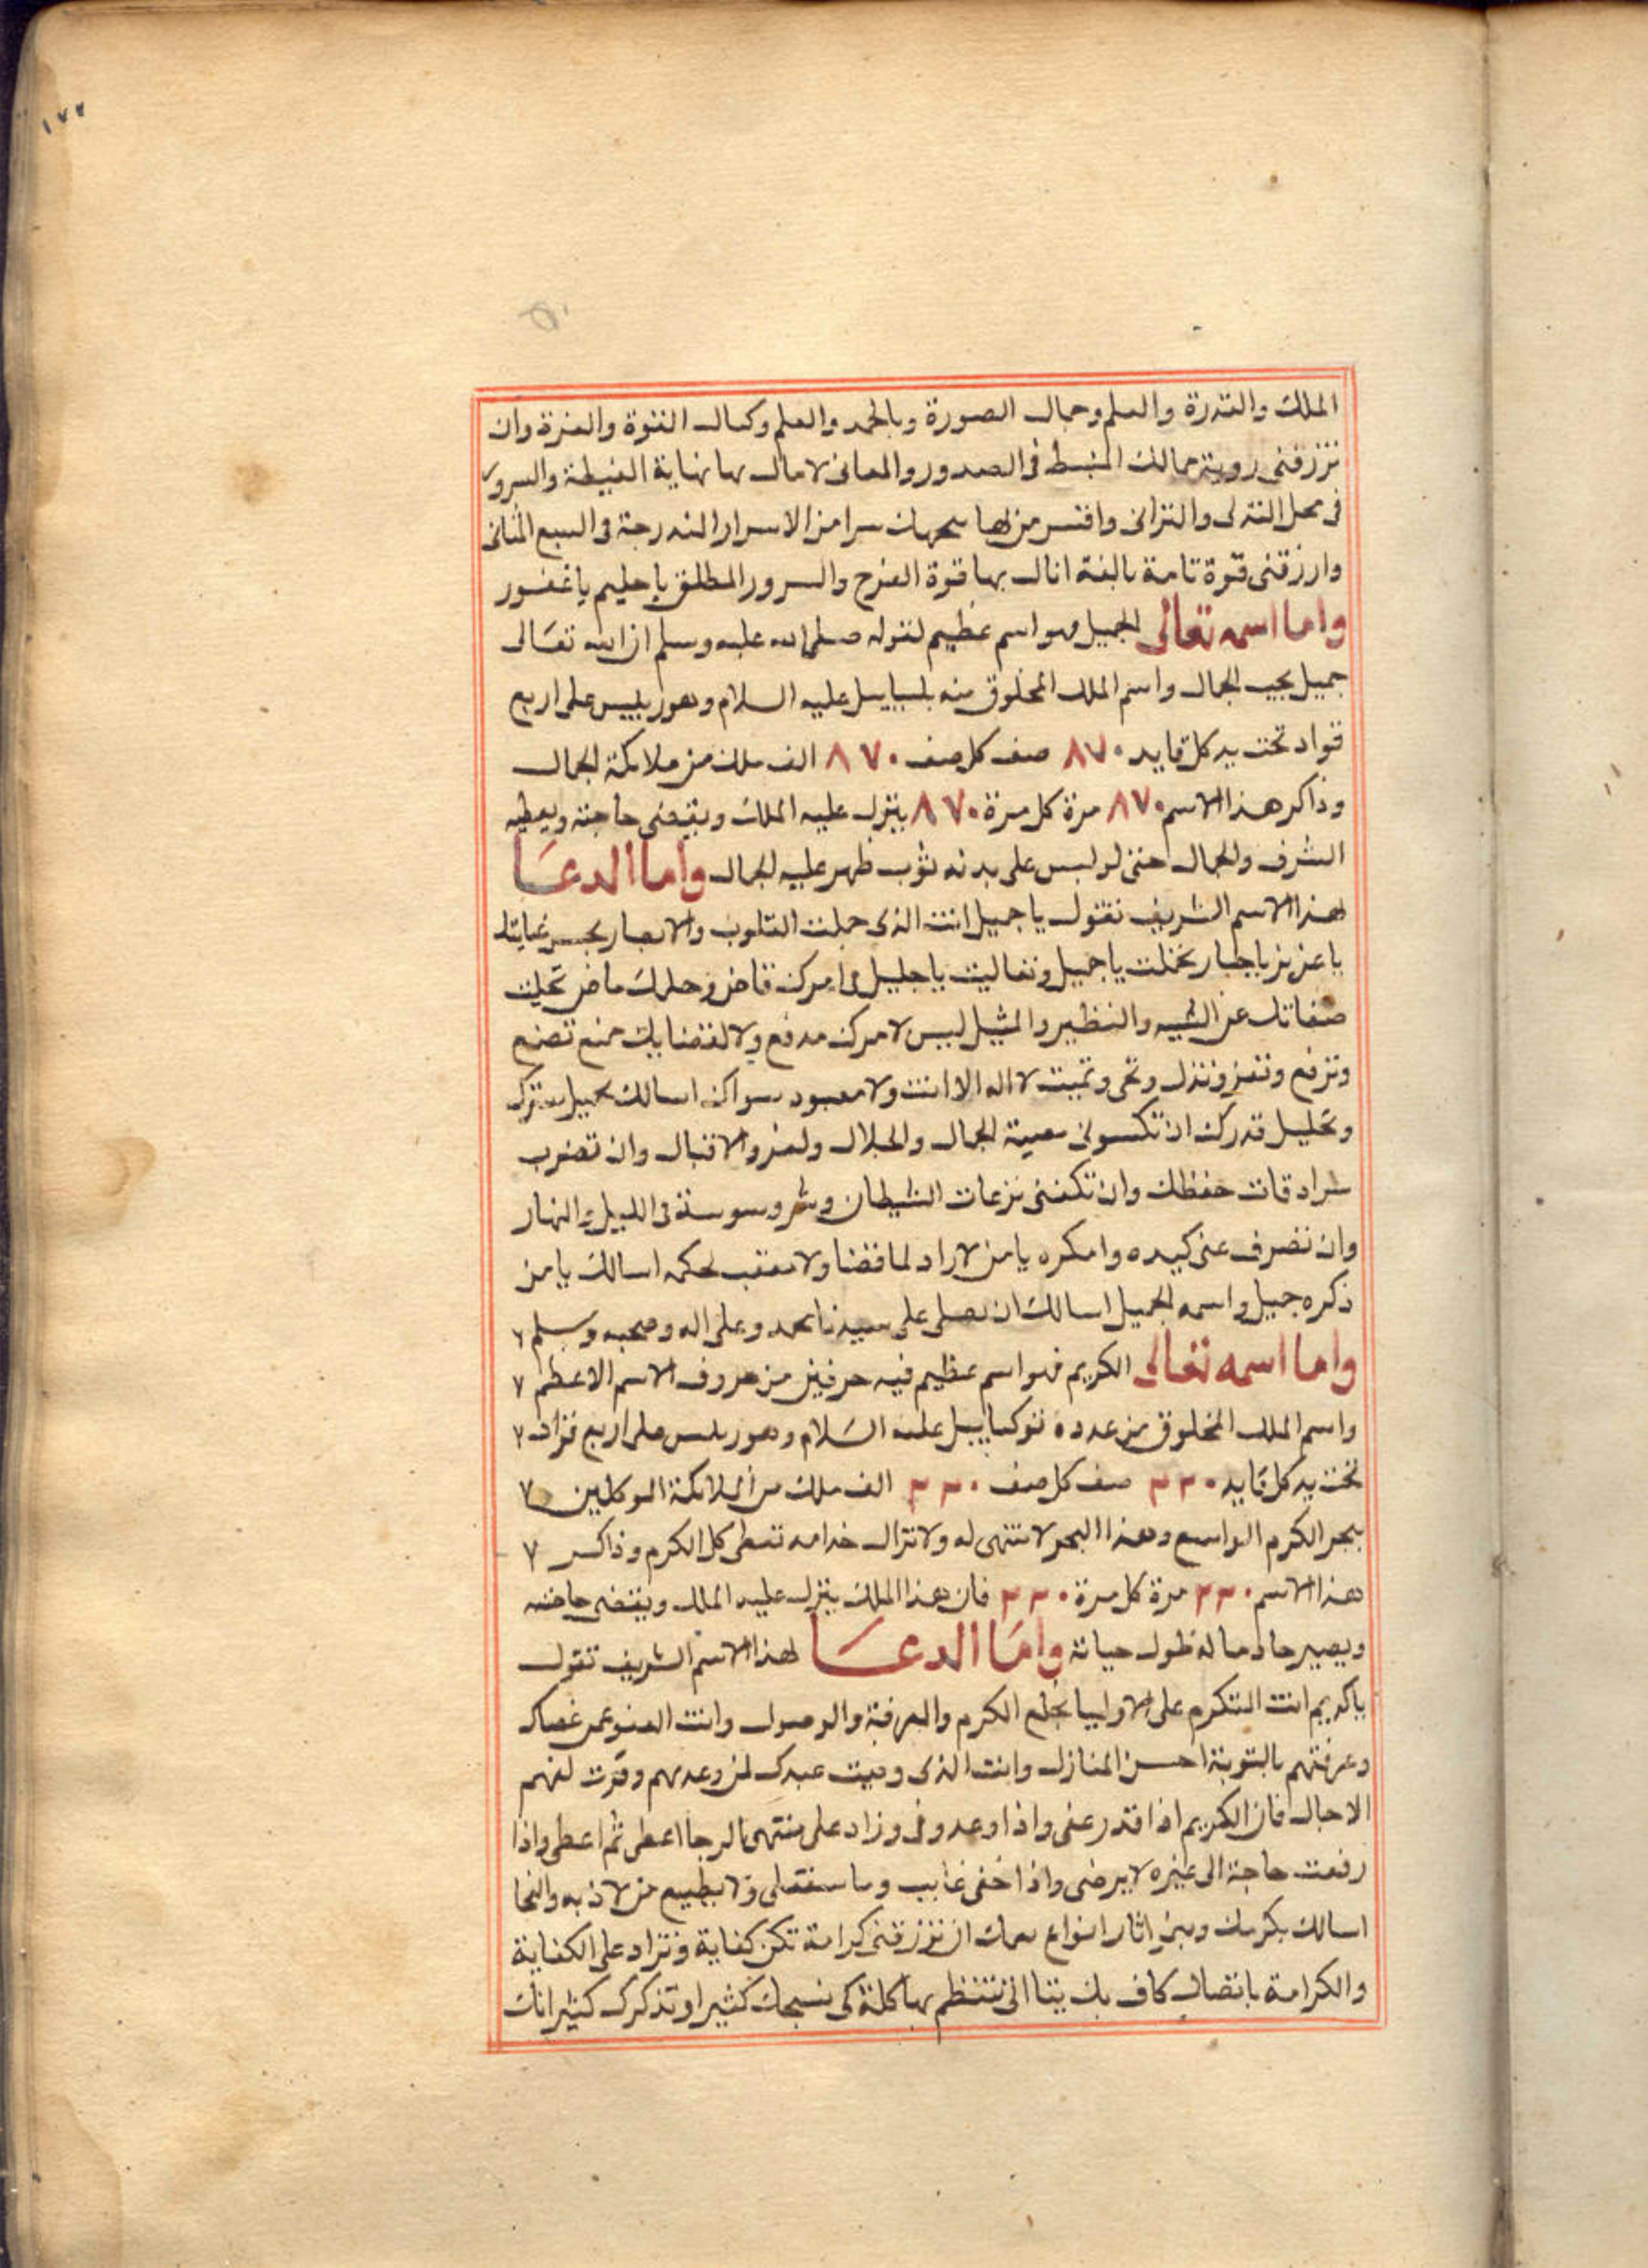 ١٧٧
الملك والقدرة والعلم وجمال الصورة وبالحمد والعلم وكمال القوة والعزة وان
ترزقنى روية جمالك المنبسط فى الصدور والمعانى لامال بها نهاية الغبطة والسرور
فى محل التدلى والتدانى واقتبس من سرا من الاسرار المندرجة فى السبع المثانى
وارزقنى قوة تامة بالغة انال بها قوة الفرح والسرور المطلق يا حليم يا غفور
واما اسمه تعالى الجميل فهو اسم عظيم لقوله صلى الله عليه وسلم ان الله تعالى
جميل يحب الجمال واسم الملك المخلوق منه عليه السلام وهو رييس على اربع
قواد تحت يد كل قايد ٨٧٠ صف كل صف ٨٧٠ الف ملك من ملايكة الجمال
وذاكر هذا الاسم ٨٧٠ مرة كل مرة ٨٧٠ ينزل عليه الملك ويقضى حاجته ويعطيه
الشرف والجمال حتى لو لبس على بدنه ثوب ظهر عليه الجمال واما الدعا
لهذا الاسم الشريف تقول يا جميل انت الذى جملت القلوب والابصار
يا عزيز يا جبار يا جميل وتعاليت يا جليل امرك قاض وحلمك ماض
صفاتك عن الشبيه والنظير والمثيل ليس لامرك مدفع ولا لقضايك منع تضع
وترفع وتعز وتذل وتحى وتميت لا اله الا انت ولا معبود سواك اسالك
قدرك ان تكسونى الجمال والجلال والعز والاقبال وان تضرب
سرادقات حفظك وان تكفنى نزعات الشيطان وشر وسوسته فى الليل والنهار
وان تصرف عنى كيده وامكره يا من لا راد لما قضا ولا معقب لحكمه اسالك يا من
ذكره جميل واسمه الجميل اسالك ان تصلى على سيدنا محمد وعلى اله وصحبه وسلم ٧
واما اسمه تعالى الكريم فهو اسم عظيم فيه حرفين من حروف الاسم الاعظم ٧
واسم الملك المخلوق من عدده عليه السلام وهو رييس على اربع قواد ٧
تحت يد كل قايد ٢٢٠ صف كل صف ٢٢٠ الف ملك من الملايكة الموكلين ٧
ببحر الكرم الواسع وهذا البحر لا منتهى له ولا تزال خدامه تعطى كل الكرم وذاكر ٧
هذا الاسم ٢٢٠ مرة كل مرة ٢٢٠ فان هذا الملك ينزل عليه الملك ويقضى حاجته
ويصير خادما له طول حياته واما الدعا لهذا الاسم الشريف تقول
يا كريم انت المتكرم على الاوليا بخلع الكرم والمعرفة والوصول وانت العفو عمن عصاك
وعرفتهم بالتوبة احسن المنازل وانت الذى وفيت عبدك لمن وعدهم وقرت لفهم
الاجال فان الكريم اذا قدر عفى واذا وعد وفى وزاد على منتهى الرجا اعطى ثم اعطى واذا
رفعت حاجة الى غيره لا يرضى واذا خفى غايب وما ولا يضيع من لاذ به والتجا
اسالك بكرمك اثار انواع ان ترزقنى كرامة تكن كفاية وتزاد على الكفاية
والكرامة باتصال كاف بك تنتظم بها كلة كى نسبحك كثيرا ونذكرك كثيرا انك